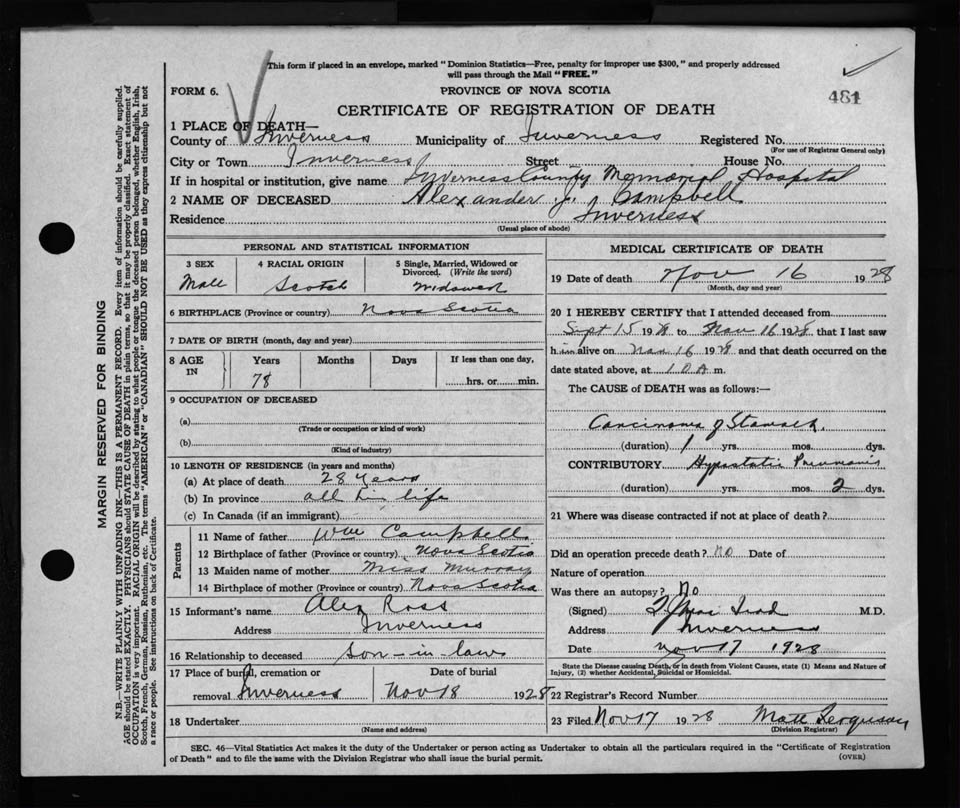 This form if placed in an envelope, marked "Dominion Statistics—Free, penalty for improper use $300," and properly addressed
will pass through the Mail "FREE."
FORM 6.
PROVINCE OF NOVA SCOTIA
481
CERTIFICATE OF REGISTRATION OF DEATH
1 PLACE OF DEATH—
County of Inverness Municipality of Inverness Registered No.
(For use of Registrar General only)
City or Town Inverness Street House No.
If in hospital or institution, give name Inverness County Memorial Hospital
2 NAME OF DECEASED Alexander J. Campbell
Residence Inverness
(Usual place of abode)
PERSONAL AND STATISTICAL INFORMATION
3 SEX 4 RACIAL ORIGIN 5 Single, Married, Widowed or
Divorced. (Write the word)
Male Scotch Widowed
6 BIRTHPLACE (Province or country) Nova Scotia
7 DATE OF BIRTH (month, day and year)
8 AGE IN Years Months Days If less than one day,
78 hrs. or min.
9 OCCUPATION OF DECEASED
(a)
(Trade or occupation or kind of work)
(b)
(Kind of industry)
10 LENGTH OF RESIDENCE (in years and months)
(a) At place of death 28 years
(b) In province all his life
(c) In Canada (if an immigrant)
Parents
11 Name of father Wm Campbell
12 Birthplace of father (Province or country) Nova Scotia
13 Maiden name of mother Miss Murray
14 Birthplace of mother (Province or country) Nova Scotia
15 Informant's name Alex Ross
Address Inverness
16 Relationship to deceased Son-in-law
17 Place of burial, cremation or Date of burial
removal Inverness Nov 18 1928
18 Undertaker
(Name and address)
MEDICAL CERTIFICATE OF DEATH
19 Date of death Nov 16 1928
(Month, day and year)
20 I HEREBY CERTIFY that I attended deceased from
Sept 15 1928 to Nov 16 1928, that I last saw
him alive on Nov 16 1928 and that death occurred on the
date stated above, at 10 A m.
The CAUSE of DEATH was as follows:—
Carcinoma of Stomach.
(duration) 1 yrs. mos. dys.
CONTRIBUTORY Hypostatic Pneumonia
(duration) yrs. mos. 2 dys.
21 Where was disease contracted if not at place of death?
Did an operation precede death? No Date of
Nature of operation
Was there an autopsy? No
(Signed) M.D.
Address Inverness
Date Nov 17 1928
State the Disease causing Death, or in death from Violent Causes, state (1) Means and Nature of
Injury, (2) whether Accidental, Suicidal or Homicidal.
22 Registrar's Record Number
23 Filed Nov 17 1928 Matt Ferguson
(Division Registrar)
SEC. 46—Vital Statistics Act makes it the duty of the Undertaker or person acting as Undertaker to obtain all the particulars required in the "Certificate of Registration
of Death" and to file the same with the Division Registrar who shall issue the burial permit.
(OVER)
MARGIN RESERVED FOR BINDING
N.B.—WRITE PLAINLY WITH UNFADING INK—THIS IS A PERMANENT RECORD. Every item of information should be carefully supplied.
AGE should be stated EXACTLY. PHYSICIANS should STATE CAUSE OF DEATH in plain terms, so that it may be properly classified. Exact statement of
OCCUPATION is very important. RACIAL ORIGIN will be described by stating to what people or tongue the deceased person belonged, whether English, Irish,
Scotch, French, German, Russian, Ruthenian, etc. The terms "AMERICAN" or "CANADIAN" SHOULD NOT BE USED as they express citizenship but not
a race or people. See instructions on back of Certificate.